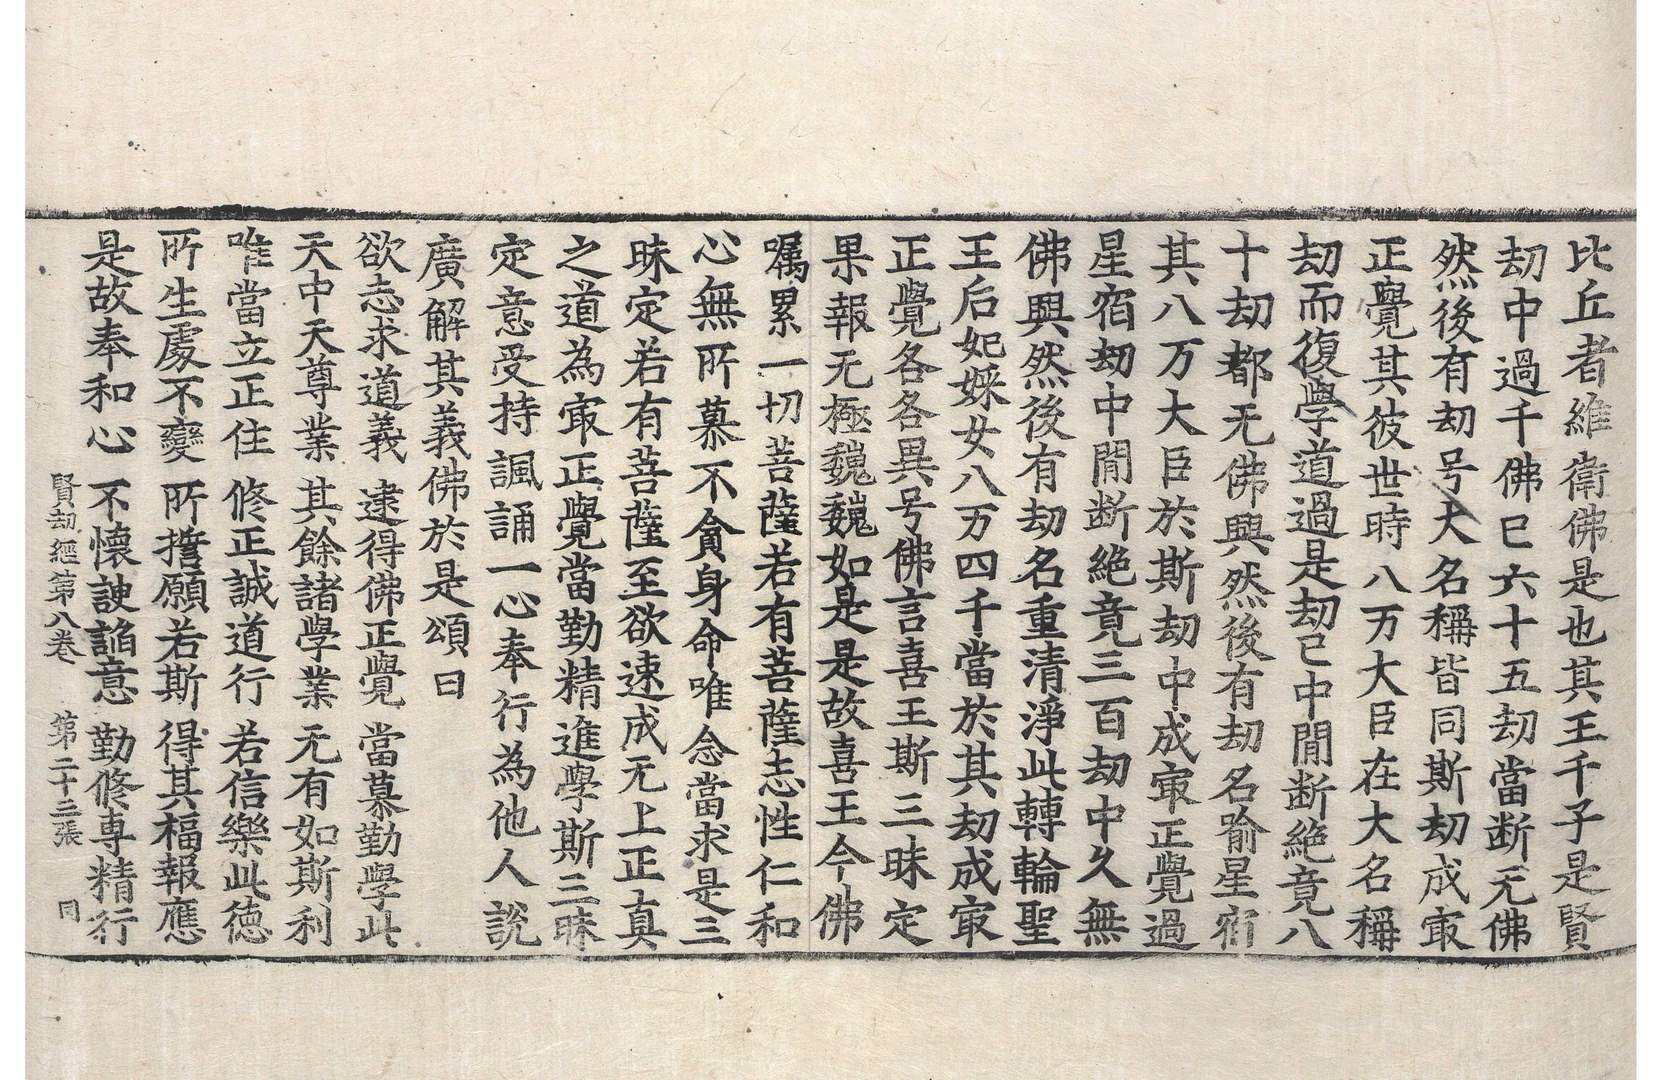 比丘者維衛佛是也其王千子是賢
劫中過千佛已六十五劫當断无佛
然後有劫号大名稱皆同斯劫成㝡
正覺其彼世時八万大臣在大名稱
劫而復學道過是劫已中閒断絶竟八
十劫都无佛興然後有劫名喻星宿
其八万大臣於斯劫中成㝡正覺過
星宿劫中閒断絶竟三百劫中久無
佛興然後有劫名重清淨此轉輪聖
王后妃婇女八万四千當於其劫成㝡
正覺各各異号佛言喜王斯三昧定
果報无極魏魏如是是故喜王今佛
囑累一切菩薩若有菩薩志性仁和
心無所慕不貪身命唯念當求是三
昧定若有菩薩至欲速成无上正真
之道為㝡正覺當勤精進學斯三昧
定意受持諷誦一心奉行為他人說
廣解其義佛於是頌曰
欲志求道義　逮得佛正覺　當慕勤學此
天中天尊業　其餘諸學業　无有如斯利
唯當立正住　修正誠道行　若信樂此德
所生處不變　所誓願若斯　得其福報應
是故奉和心　不懷諛諂意　勤修專精行
賢劫經第八卷　第二十三張　同